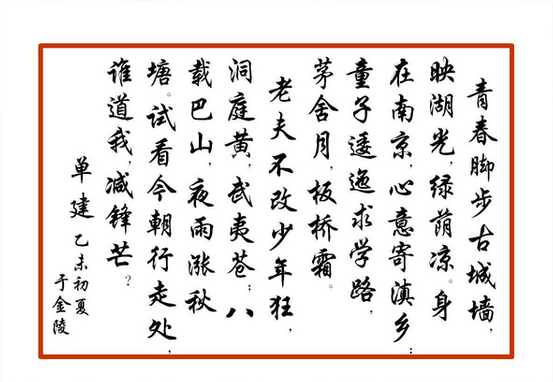 青春脚步古城墙，
映湖光，绿荫凉。身
在南京，心意寄滇乡；
童子逶迤求学路，
茅舍月，板桥霜。
老夫不改少年狂，
洞庭黄，武夷苍；八
载巴山，夜雨涨秋
塘。试看今朝行走处，
谁道我，减锋芒？
单建 乙未初夏
于金陵